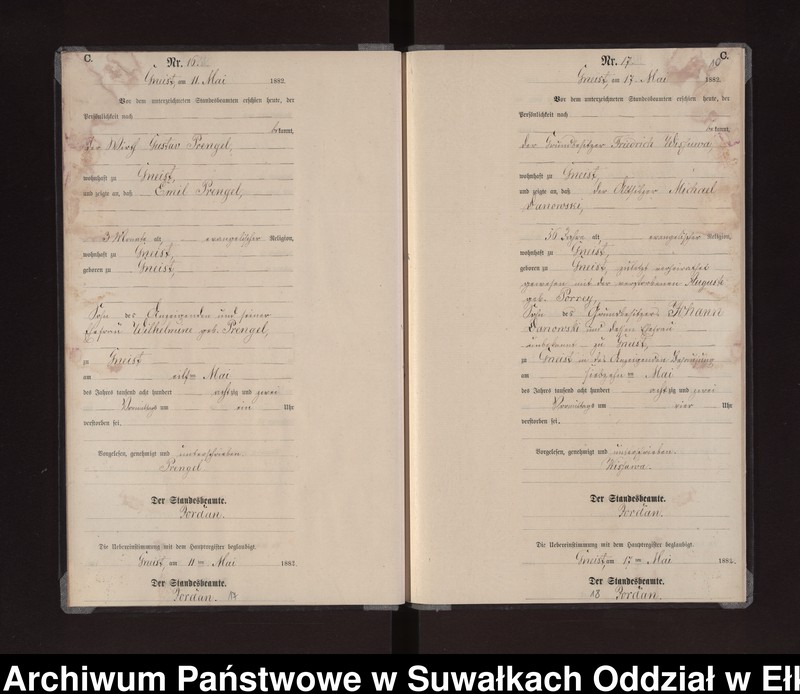 C.
Nr. 16
Gneist, am 11 Mai 1882.
Vor dem unterzeichneten Standesbeamten erschien heute, der
Persönlichkeit nach
bekannt,
der Wirth Gustav Prengel,
wohnhaft zu Gneist,
und zeigte an, daß Emil Prengel,
3 Monate alt, evangelischer Religion,
wohnhaft zu Gneist,
geboren zu Gneist,
Sohn des Anzeigenden und seiner
Ehefrau Wilhelmine geb. Prengel,
zu Gneist
am elften Mai
des Jahres tausend acht hundert achtzig und zwei
Vormittags um ein Uhr
verstorben sei.
Vorgelesen, genehmigt und unterschrieben
Prengel
Der Standesbeamte.
Jordan.
Die Uebereinstimmung mit dem Hauptregister beglaubigt.
Gneist, am 11ten Mai 1882.
Der Standesbeamte.
Jordan. 17
C.
Nr. 17
Gneist, am 17 Mai 1882.
Vor dem unterzeichneten Standesbeamten erschien heute, der
Persönlichkeit nach
bekannt,
der Grundbesitzer Friedrich
wohnhaft zu Gneist,
und zeigte an, daß der Altsitzer Michael
Danowski,
56 Jahre alt, evangelischer Religion,
wohnhaft zu Gneist,
geboren zu Gneist, zuletzt verheirathet
gewesen mit der verstorbenen Auguste
geb.
Sohn des Grundbesitzers Johann
Danowski und dessen Ehefrau
unbekannt zu Gneist,
zu Gneist in des Anzeigenden Behausung
am siebzehnten Mai
des Jahres tausend acht hundert achtzig und zwei
Vormittags um vier Uhr
verstorben sei.
Vorgelesen, genehmigt und unterschrieben.
Der Standesbeamte.
Jordan.
Die Uebereinstimmung mit dem Hauptregister beglaubigt.
Gneist, am 17ten Mai 1882.
Der Standesbeamte.
18 Jordan.
Archiwum Państwowe w Suwałkach Oddział w Ełk